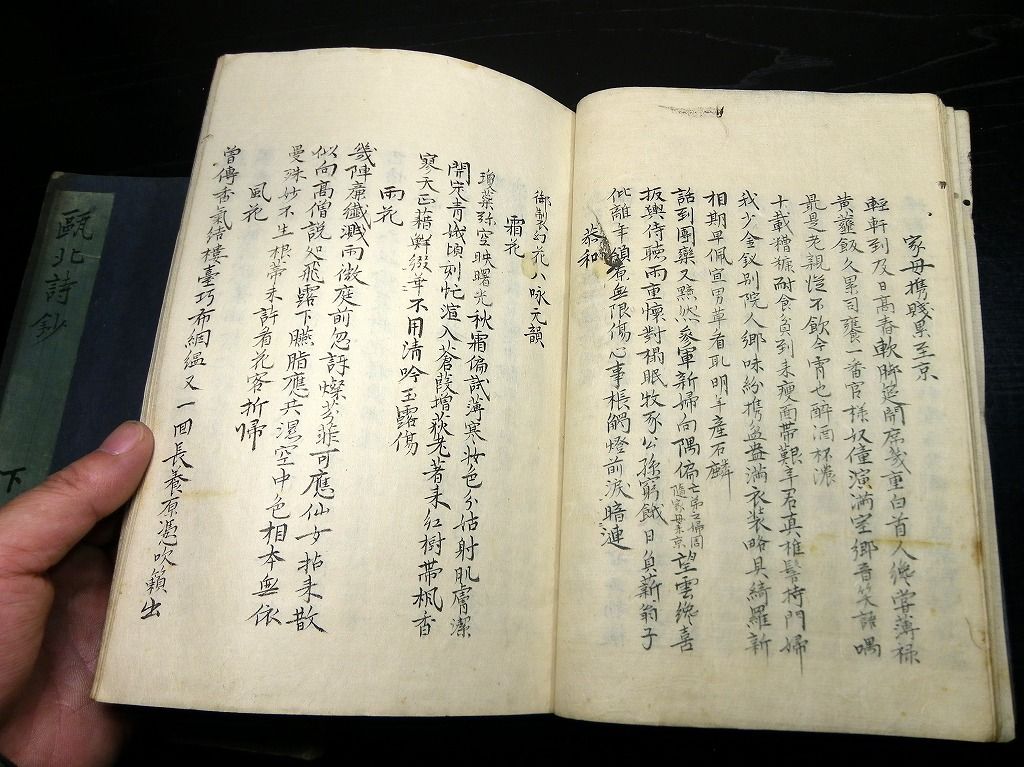 家母攜賤累至京
輕軒到及日高舂軟脚筵開席幾重白首人纔嘗薄祿
黃虀飯久累司饔一番官樣奴僮演滿室鄉音笑語喁
最是老親從不飲今宵也醉酒杯濃
十載糟糠耐食貧到來瘦面帶艱辛君真椎髻持門婦
我少金釵別院人鄉味紛攜盆盎滿衣裝略具綺羅新
相期早佩宜男草看取明年產石麟
話到團欒又黯然參軍新婦向隅偏亡弟之婦同隨家母來京望雲纔喜
扳輿侍聽雨重懷對榻眠牧豕公孫窮餓日負薪翁子
仳離年頷無限傷心事悵觸燈前淚暗漣
恭和
御製幻花八咏元韻
霜花
瓊蘂珠空映曙光秋霜偏試薄寒妝色分姑射肌膚潔
開定青娥頃刻忙渲入蒼葭增荻老著來紅樹帶楓香
寒天正藉鮮綴不用清吟玉露傷
雨花
幾陣廉纖濺雨微庭前忽訝燦芳菲可應仙女拈來散
似向高僧說處飛露下臙脂應共濕空中色相本無依
曼殊妙不生根蒂未許看花客折歸
風花
曾傳香氣結樓臺巧布網縕又一回長養原憑吹籟出
甌北詩鈔
下